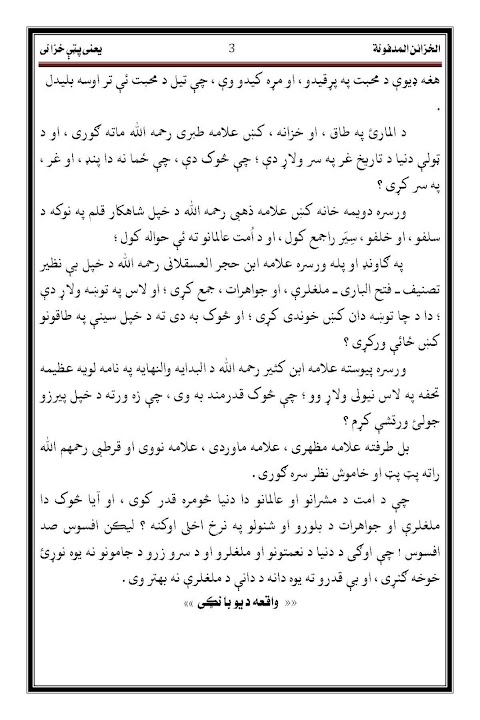 الخزائن المدفونة 3 يعني پټې خزانې
هغه ډيوې د محبت په پړقيدو ، او مړه کيدو وې ، چې تيل د محبت ئې تر اوسه بليدل
.
د المارئ په طاق ، او خزانه ، کښ علامه طبري رحمه الله ماته ګوري ، او د
ټولې دنيا د تاريخ غر په سر ولاړ دې ؛ چې څوک دې ، چې ځما نه دا پنډ ، او غر ،
په سر کړی ؟
ورسره دويمه خانه کښ علامه ذهبي رحمه الله د خپل شاهکار قلم په نوکه د
سلفو ، او خلفو ، سِيَر راجمع کول ، او د اُمت عالمانو ته ئې حواله کول ؛
په ګاونډ او پله ورسره علامه ابن حجر العسقلاني رحمه الله د خپل بې نظير
تصنيف ـ فتح الباری ـ ملغلرې ، او جواهرات ، جمع کړی ؛ او لاس په توښه ولاړ دې
؛ دا د چا توښه دان کښ خوندی کړی ؛ او څوک به دی ته د خپل سينې په طاقونو
کښ ځائې ورکړی ؟
ورسره پيوسته علامه ابن کثير رحمه الله د البدايه والنهايه په نامه لويه عظيمه
تحفه په لاس نيولی ولاړ وو ؛ چې څوک قدرمند به وی ، چې زه ورته د خپل پيرزو
جولئ ورتشې کړم ؟
بل طرفته علامه مظهري ، علامه ماوردی ، علامه نووی او قرطبی رحمهم الله
راته پټ پټ او خاموش نظر سره ګوری .
چې د امت د مشرانو او عالمانو دا دنيا څومره قدر کوی ، او آيا څوک دا
ملغلرې او جواهرات د بلورو او شنولو په نرخ اخلی اوکنه ؟ ليکن افسوس صد
افسوس ! چې اوګی د دنيا د نعمتونو او ملغلرو او د سرو زرو د جامونو نه يوه نوړئ
خوخه ګنړی ، او بې قدرو ته يوه دانه د دانې د ملغلرې نه بهتر وی .
«« واقعه د يو بانګی »»